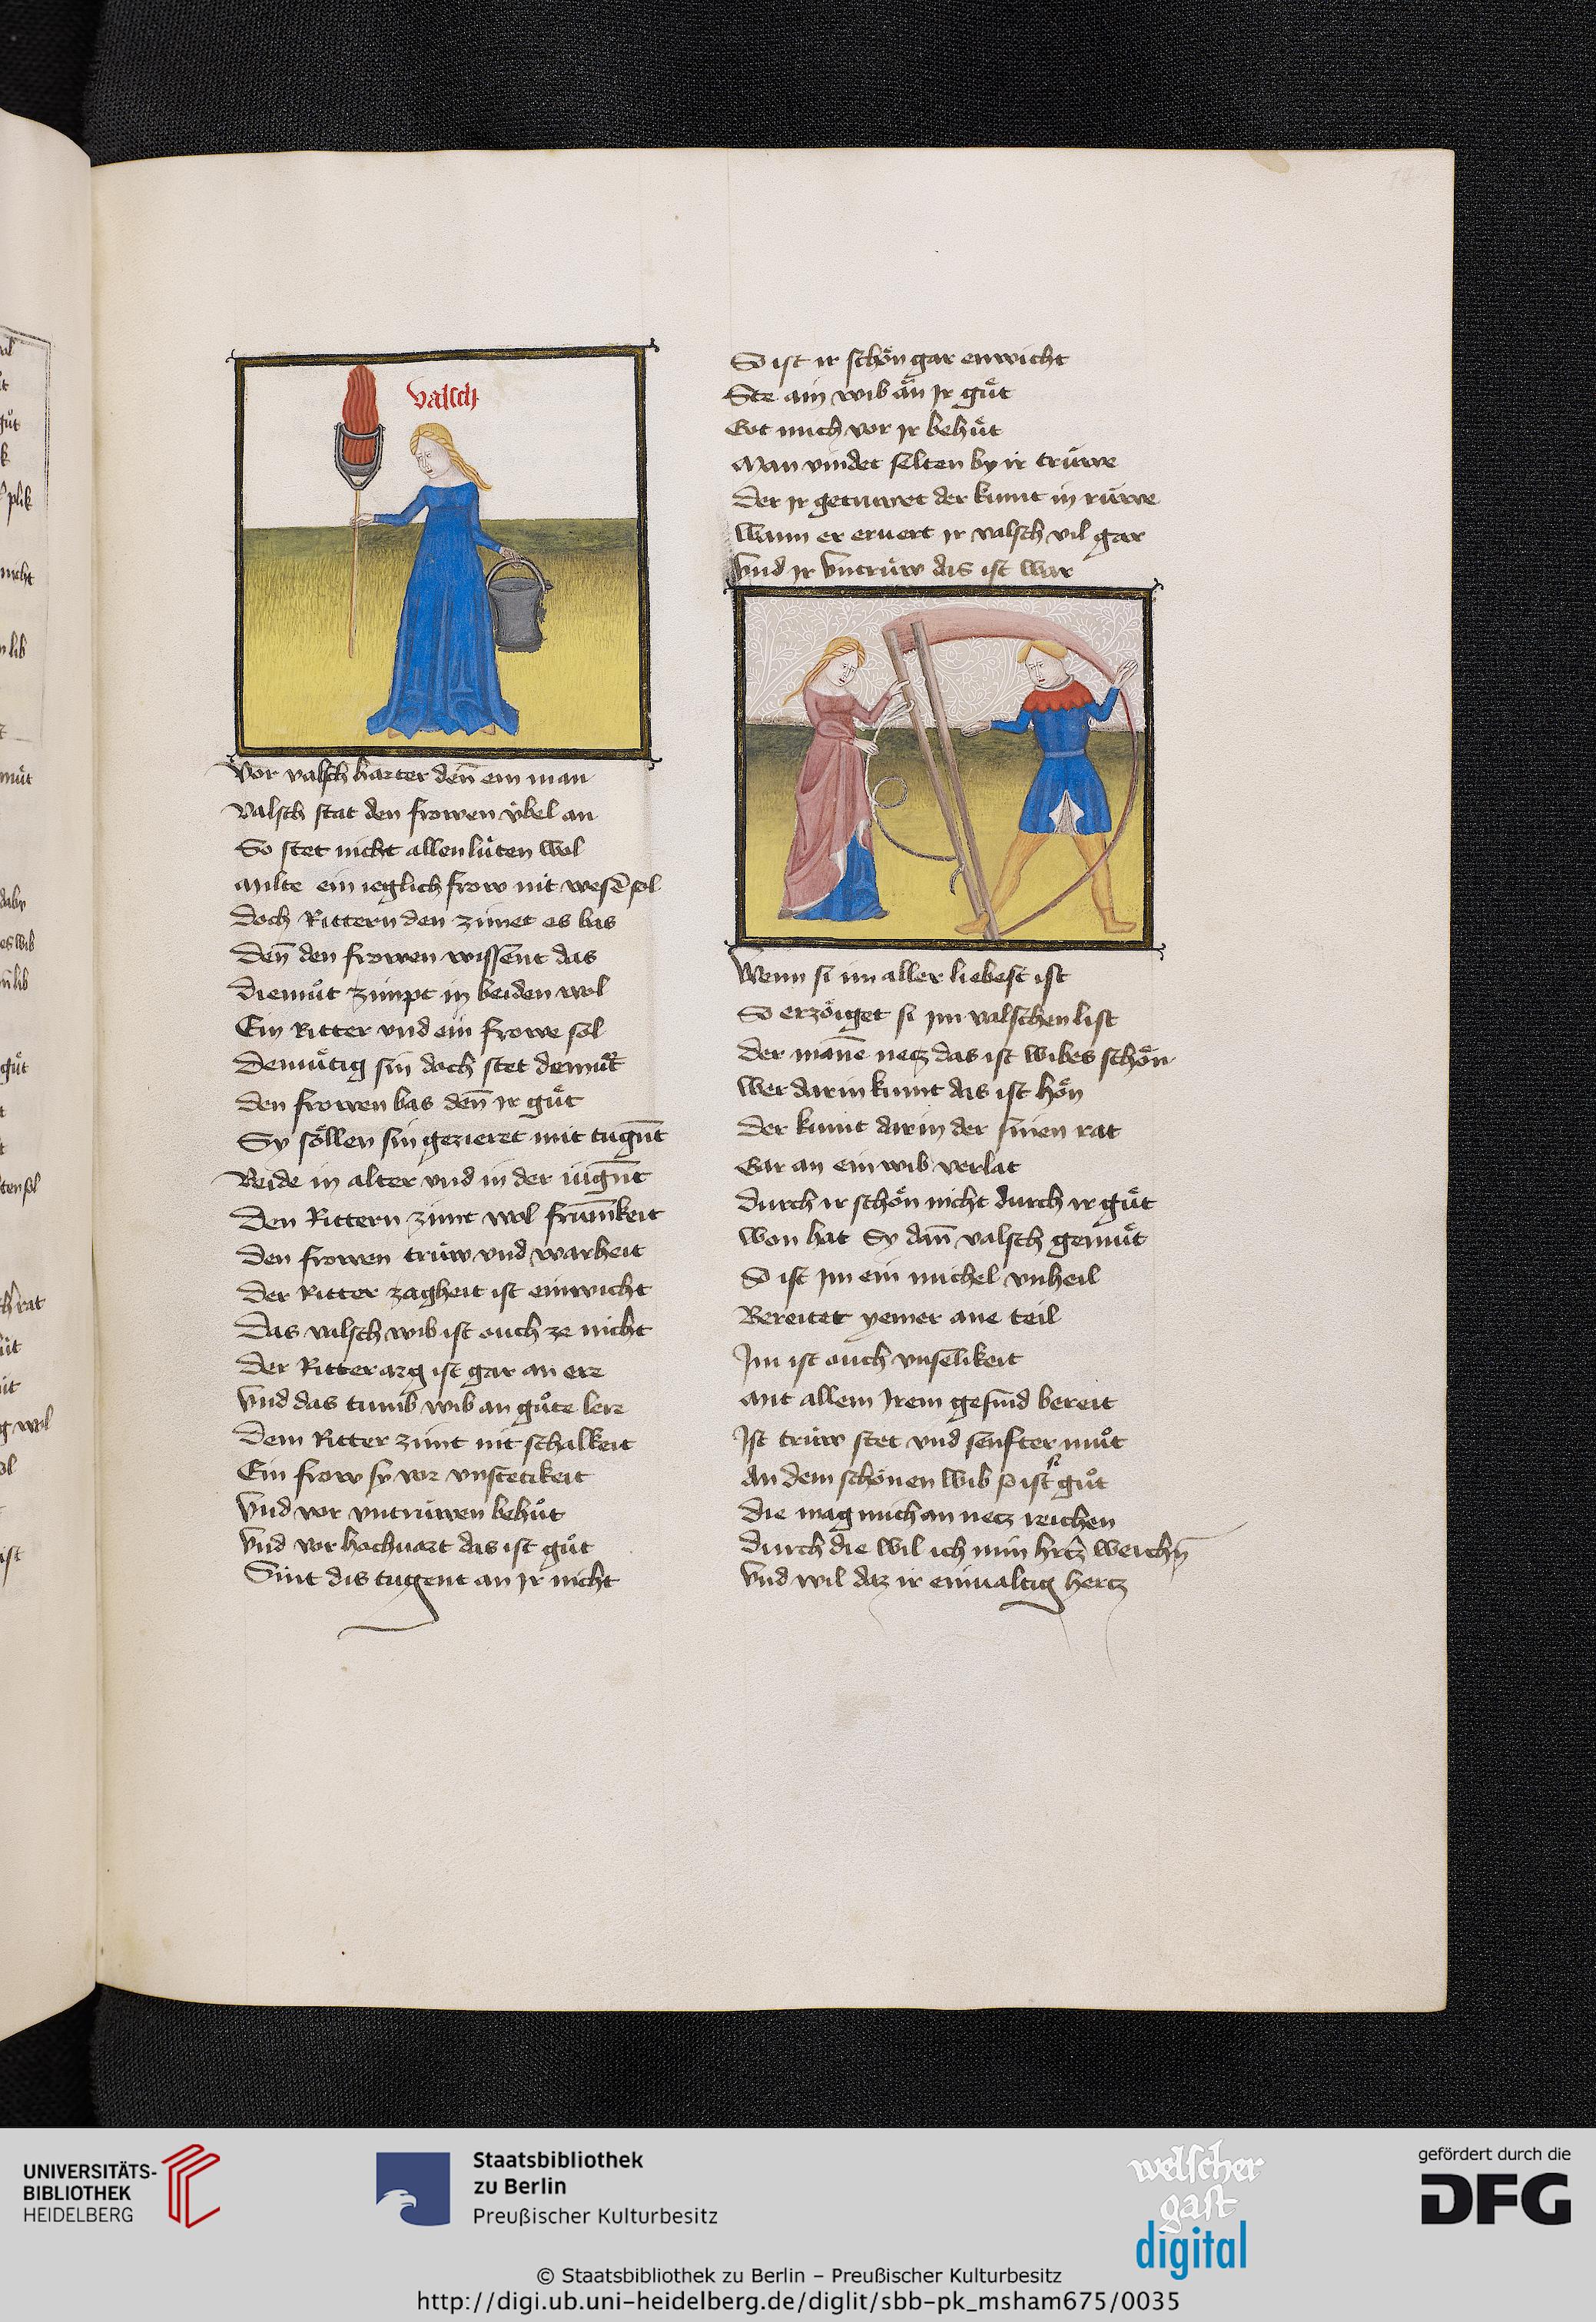 valsch
Vor valsch harter den̄ ein man
Valsch stat den frowen v̈bel an
So stet nicht allen lüten wol
Milte ein ieglich frow nit wesē sol
Doch Rittern den zimet es bas
Den̄ den frowen wissent das
Diemuͦt zimpt in beiden wol
Ein Ritter vnd ein frowe sol
Demuͤtig sin doch stet demuͤt
Den frowen bas den̄ ir guͤt
Sy soͤllen sin gezieret mit tugn̄t
Beide in alter vnd in der iugn̄t
Den Rittern zimt wol frūmkeit
Den frowen truͤw vnd warheit
Der Ritter zagheit ist einwicht
Das valsch wib ist ouch ze nicht
Der Ritter arg ist gar an ere
Vnd das tumb wib an guͦte lere
Dem Ritter zimt nit schalkeit
Ein frow sy vor vnstetikeit
Vnd vor vntrüwen behuͦt
Vnd vor hochuart das ist guͦt
Sint dis tugent an Ir nicht
So ist ir schoͤn gar enwicht
Ste ain wib än Ir guͤt
Got mich vor Ir behuͤt
Man vindet selten by ir trüwe
Der Ir getruwet der kumt in rüwe
Wann er eruert Ir valsch vil gar
Vnd Ir Vntrüw das ist war
Wenn si im aller liebest ist
So erzoͤiget si Im valschen list
Der mānē netz das ist wibes schoͤn
Wer darin kumt das ist hoͤn
Der kumt dar in der sinen rat
Gar an ein wib verlat
Durch ir schoͤn nicht durch ir guͤt
Won hat Sy dan̄ valsch gemuͤt
So ist Im ein michel vnheil
Bereitet yemer ane teil
Im ist ouch vnselikeit
Mit allem Irem gesind bereit
Ist trüw stet vnd senfter muͦt
An dem schoͤnen wib so ist si guͦt
Die mag mich an netz reichen
Durch die wil ich min hrtz weichn̄
Vnd wil daz ir einualtig hertz
UNIVERSITÄTS-
BIBLIOTHEK
HEIDELBERG
Staatsbibliothek
zu Berlin
Preußischer Kulturbesitz
welscher
gast
digital
gefördert durch die
DFG
© Staatsbibliothek zu Berlin – Preußischer Kulturbesitz
http://digi.ub.uni-heidelberg.de/diglit/sbb-pk_msham675/0035